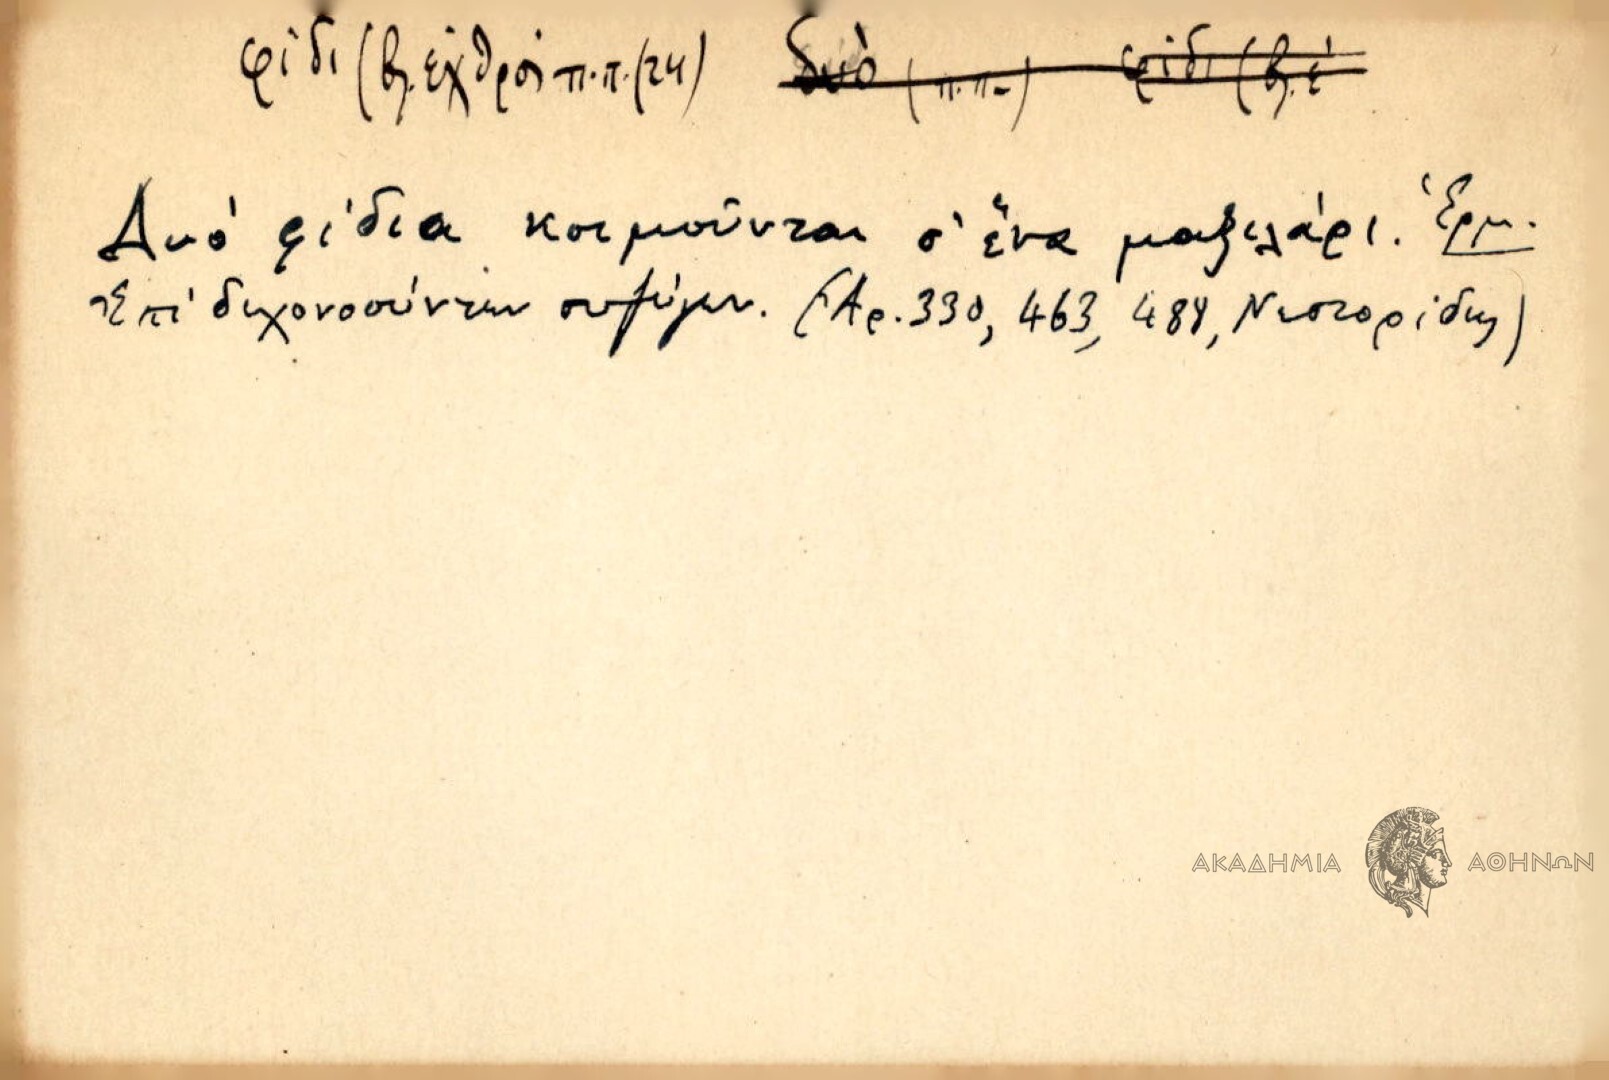 φίδι (βλ. ἐχθροὶ π.π. (24) δυὸ (π.π.) φίδι (βλ. ἐ
Δυό φίδια κοιμοῦνται σ' ἕνα μαξιλάρι. Ἑρμ.
Ἐπί διχονοούντων συζύγων. (Ἀρ. 330, 463, 488, Νεστορίδης)
ΑΚΑΔΗΜΙΑ ΑΘΗΝΩΝ